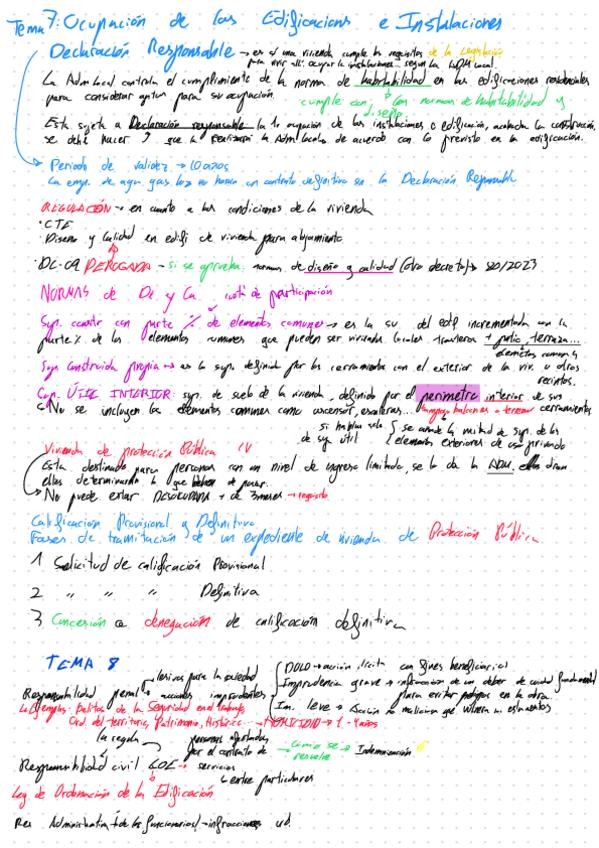 Tema 7: Ocupación de las Edificacions e Instalaciones
Declaración Responsable → es si una vivienda cumple los requisitos de la Legislación
para vivir allí: ocupar la instalaciones según la Adm local.
La Adm Local controla el cumplimiento de la norma de habitabilidad en las edificaciones residenciales
para considerar aptas para su ocupación.
cumple con las normas de habitabilidad y
diseño
Esta sujeta a Declaración responsable la 1º ocupación de las instalaciones o edificación, acabada la construcción,
se debe hacer y que la realizará la Adm Local de acuerdo con lo previsto en la edificación.
Periodo de validez → 10 años
La emp. de agua gas luz no harán un contrato definitivo sin la Declaración Responsable
REGULACIÓN → en cuanto a las condiciones de la vivienda
· CTE
· Diseño y Calidad en edifi de vivienda para alojamiento
· DC-09 DEROGADA - si se aprueba normas de diseño y calidad (otro decreto) → 80/2023
NORMAS de Di y Ca
de participación
Sup. constr con parte % de elementos comunes → es la su del edif incrementada con la
parte % de los elementos comunes que pueden ser vivienda locales trasteros + patio, terraza...
elementos comunes
Sup Construida propia → es la sup. definida por los cerramientos con el exterior de la viv. u otros
recintos.
Sup. ÚTIL INTERIOR: sup. de suelo de la vivienda, definido por el perímetro interior de sus
cerramientos
No se incluyen los elementos comunes como ascensor, escaleras... tampoco balcones o terrazas
si hablas solo
de sup útil
se añade la mitad de sup. de los
elementos exteriores de uso privado
Vivienda de protección Pública
Esta destinado para personas con un nivel de ingreso limitado, se lo da la ADM,
ellas determinarán lo que deben de pagar.
No puede estar DESOCUPADA + de 3 meses → requisito
Calificación Provisional y Definitiva
Fases de tramitación de un expediente de vivienda de Protección Pública
1 Solicitud de calificación Provisional
2 " " " Definitiva
3 Concesión o denegación de calificación definitiva
TEMA 8
Responsabilidad penal
lesivas para la sociedad
acciones imprudentes
DOLO → acción ilícita con fines beneficiarios
Imprudencia grave → infracción de un deber de cuidado fundamental
para evitar peligros en la obra
Im. leve → Acción no maliciosa que
Ejemplos: Delitos de la Seguridad en el trabajo,
Ord. del territorio, Patrimonio, Histórico → HOMICIDIO → 1 - 4 años
la regula
personas afectadas
por el contrato de
servicios
como se
resuelve → Indemnización €
Responsabilidad civil LOE
entre particulares
Ley de Ordenación de la Edificación
Res Administrativa → de los funcionarios → infracciones